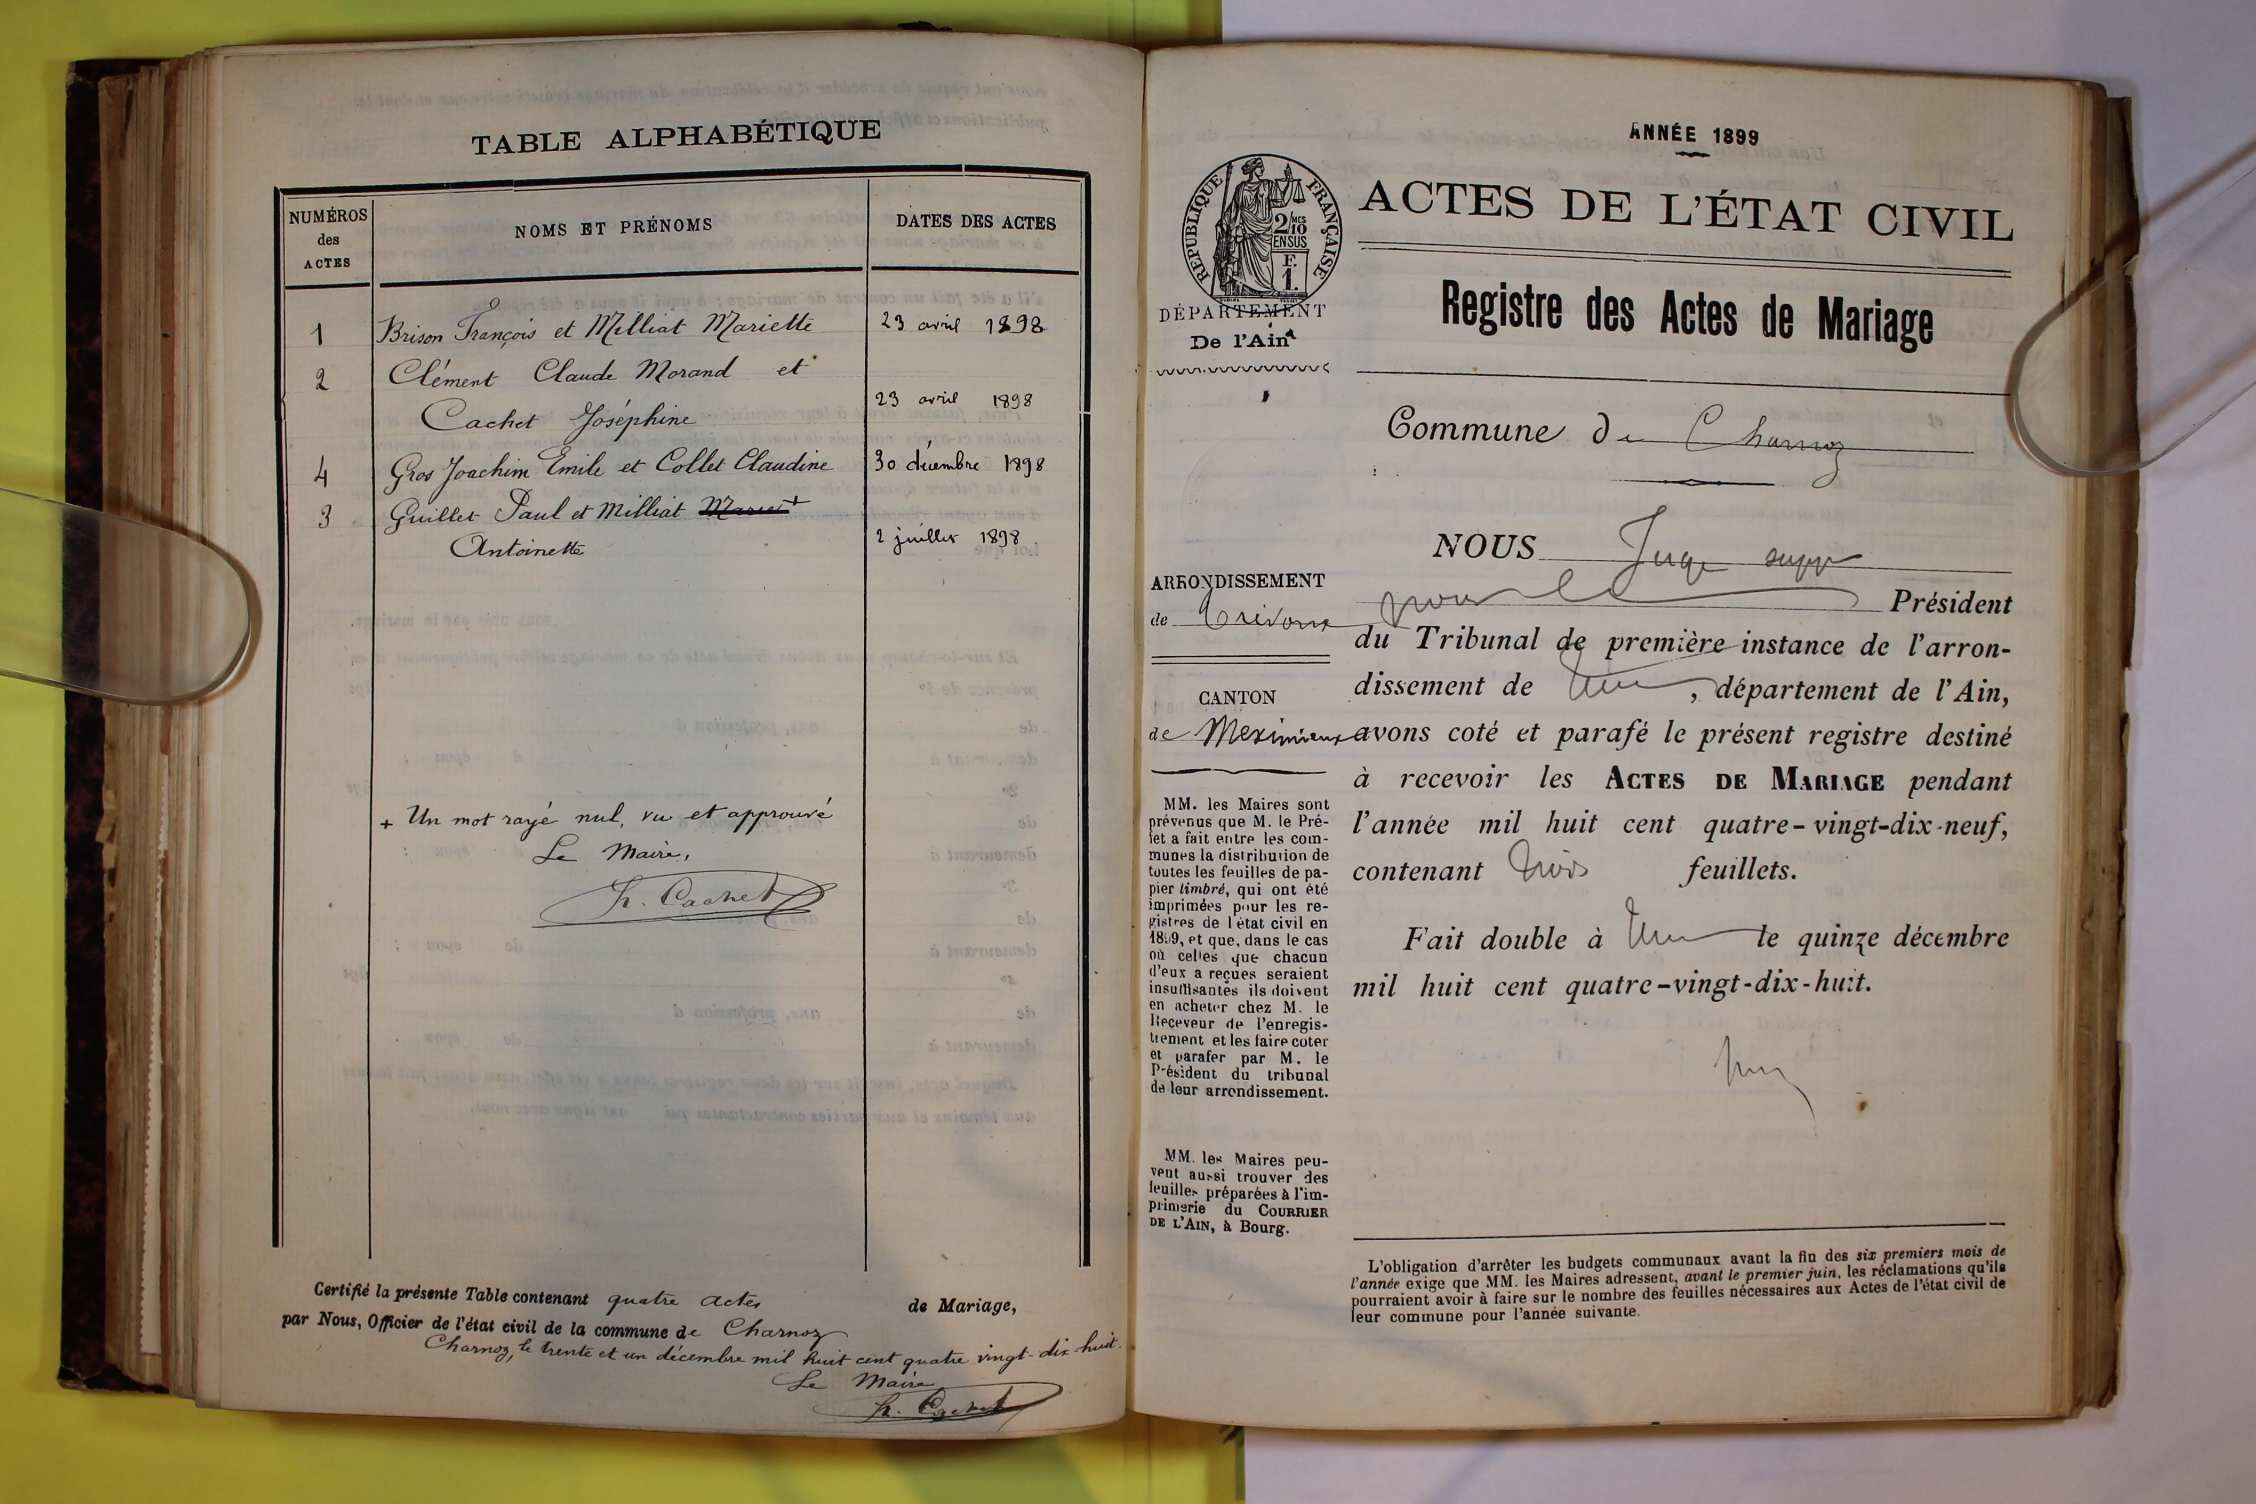 TABLE ALPHABÉTIQUE
NUMÉROS
des
ACTES
NOMS ET PRÉNOMS
DATES DES ACTES
1 Brison François et Milliat Mariette 23 avril 1898
2 Clément Claude Morand et
Cachet Joséphine 23 avril 1898
4 Gros Joachim Emile et Collet Claudine 30 décembre 1898
3 Guillet Paul et Milliat Mariet +
Antoinette 2 juillet 1898
+ Un mot rayé nul, vu et approuvé
Le Maire,
h. Cachet
Certifié la présente Table contenant quatre actes de Mariage,
par Nous, Officier de l'état civil de la commune de Charnoz
Charnoz, le trente et un décembre mil huit cent quatre vingt-dix-huit.
Le Maire
h. Cachet
ANNÉE 1899
RÉPUBLIQUE FRANÇAISE
2/10
MES
EN SUS
F.
1.
DÉPARTEMENT
De l'Ain
ARRONDISSEMENT
de Trévoux
CANTON
de Meximieux
MM. les Maires sont
prévenus que M. le Pré-
fet a fait entre les com-
munes la distribution de
toutes les feuilles de pa-
pier timbré, qui ont été
imprimées pour les re-
gistres de l'état civil en
1899, et que, dans le cas
où celles que chacun
d'eux a reçues seraient
insuffisantes ils doivent
en acheter chez M. le
Receveur de l'enregis-
trement et les faire coter
et parafer par M. le
Président du tribunal
de leur arrondissement.
MM. les Maires peu-
vent aussi trouver des
feuilles préparées à l'im-
primerie du COURRIER
DE L'AIN, à Bourg.
ACTES DE L'ÉTAT CIVIL
Registre des Actes de Mariage
Commune de Charnoz
NOUS Juge supp
pour le Président
du Tribunal de première instance de l'arron-
dissement de , département de l'Ain,
avons coté et parafé le présent registre destiné
à recevoir les ACTES DE MARIAGE pendant
l'année mil huit cent quatre-vingt-dix-neuf,
contenant trois feuillets.
Fait double à le quinze décembre
mil huit cent quatre-vingt-dix-huit.
L'obligation d'arrêter les budgets communaux avant la fin des six premiers mois de
l'année exige que MM. les Maires adressent, avant le premier juin, les réclamations qu'ils
pourraient avoir à faire sur le nombre des feuilles nécessaires aux Actes de l'état civil de
leur commune pour l'année suivante.